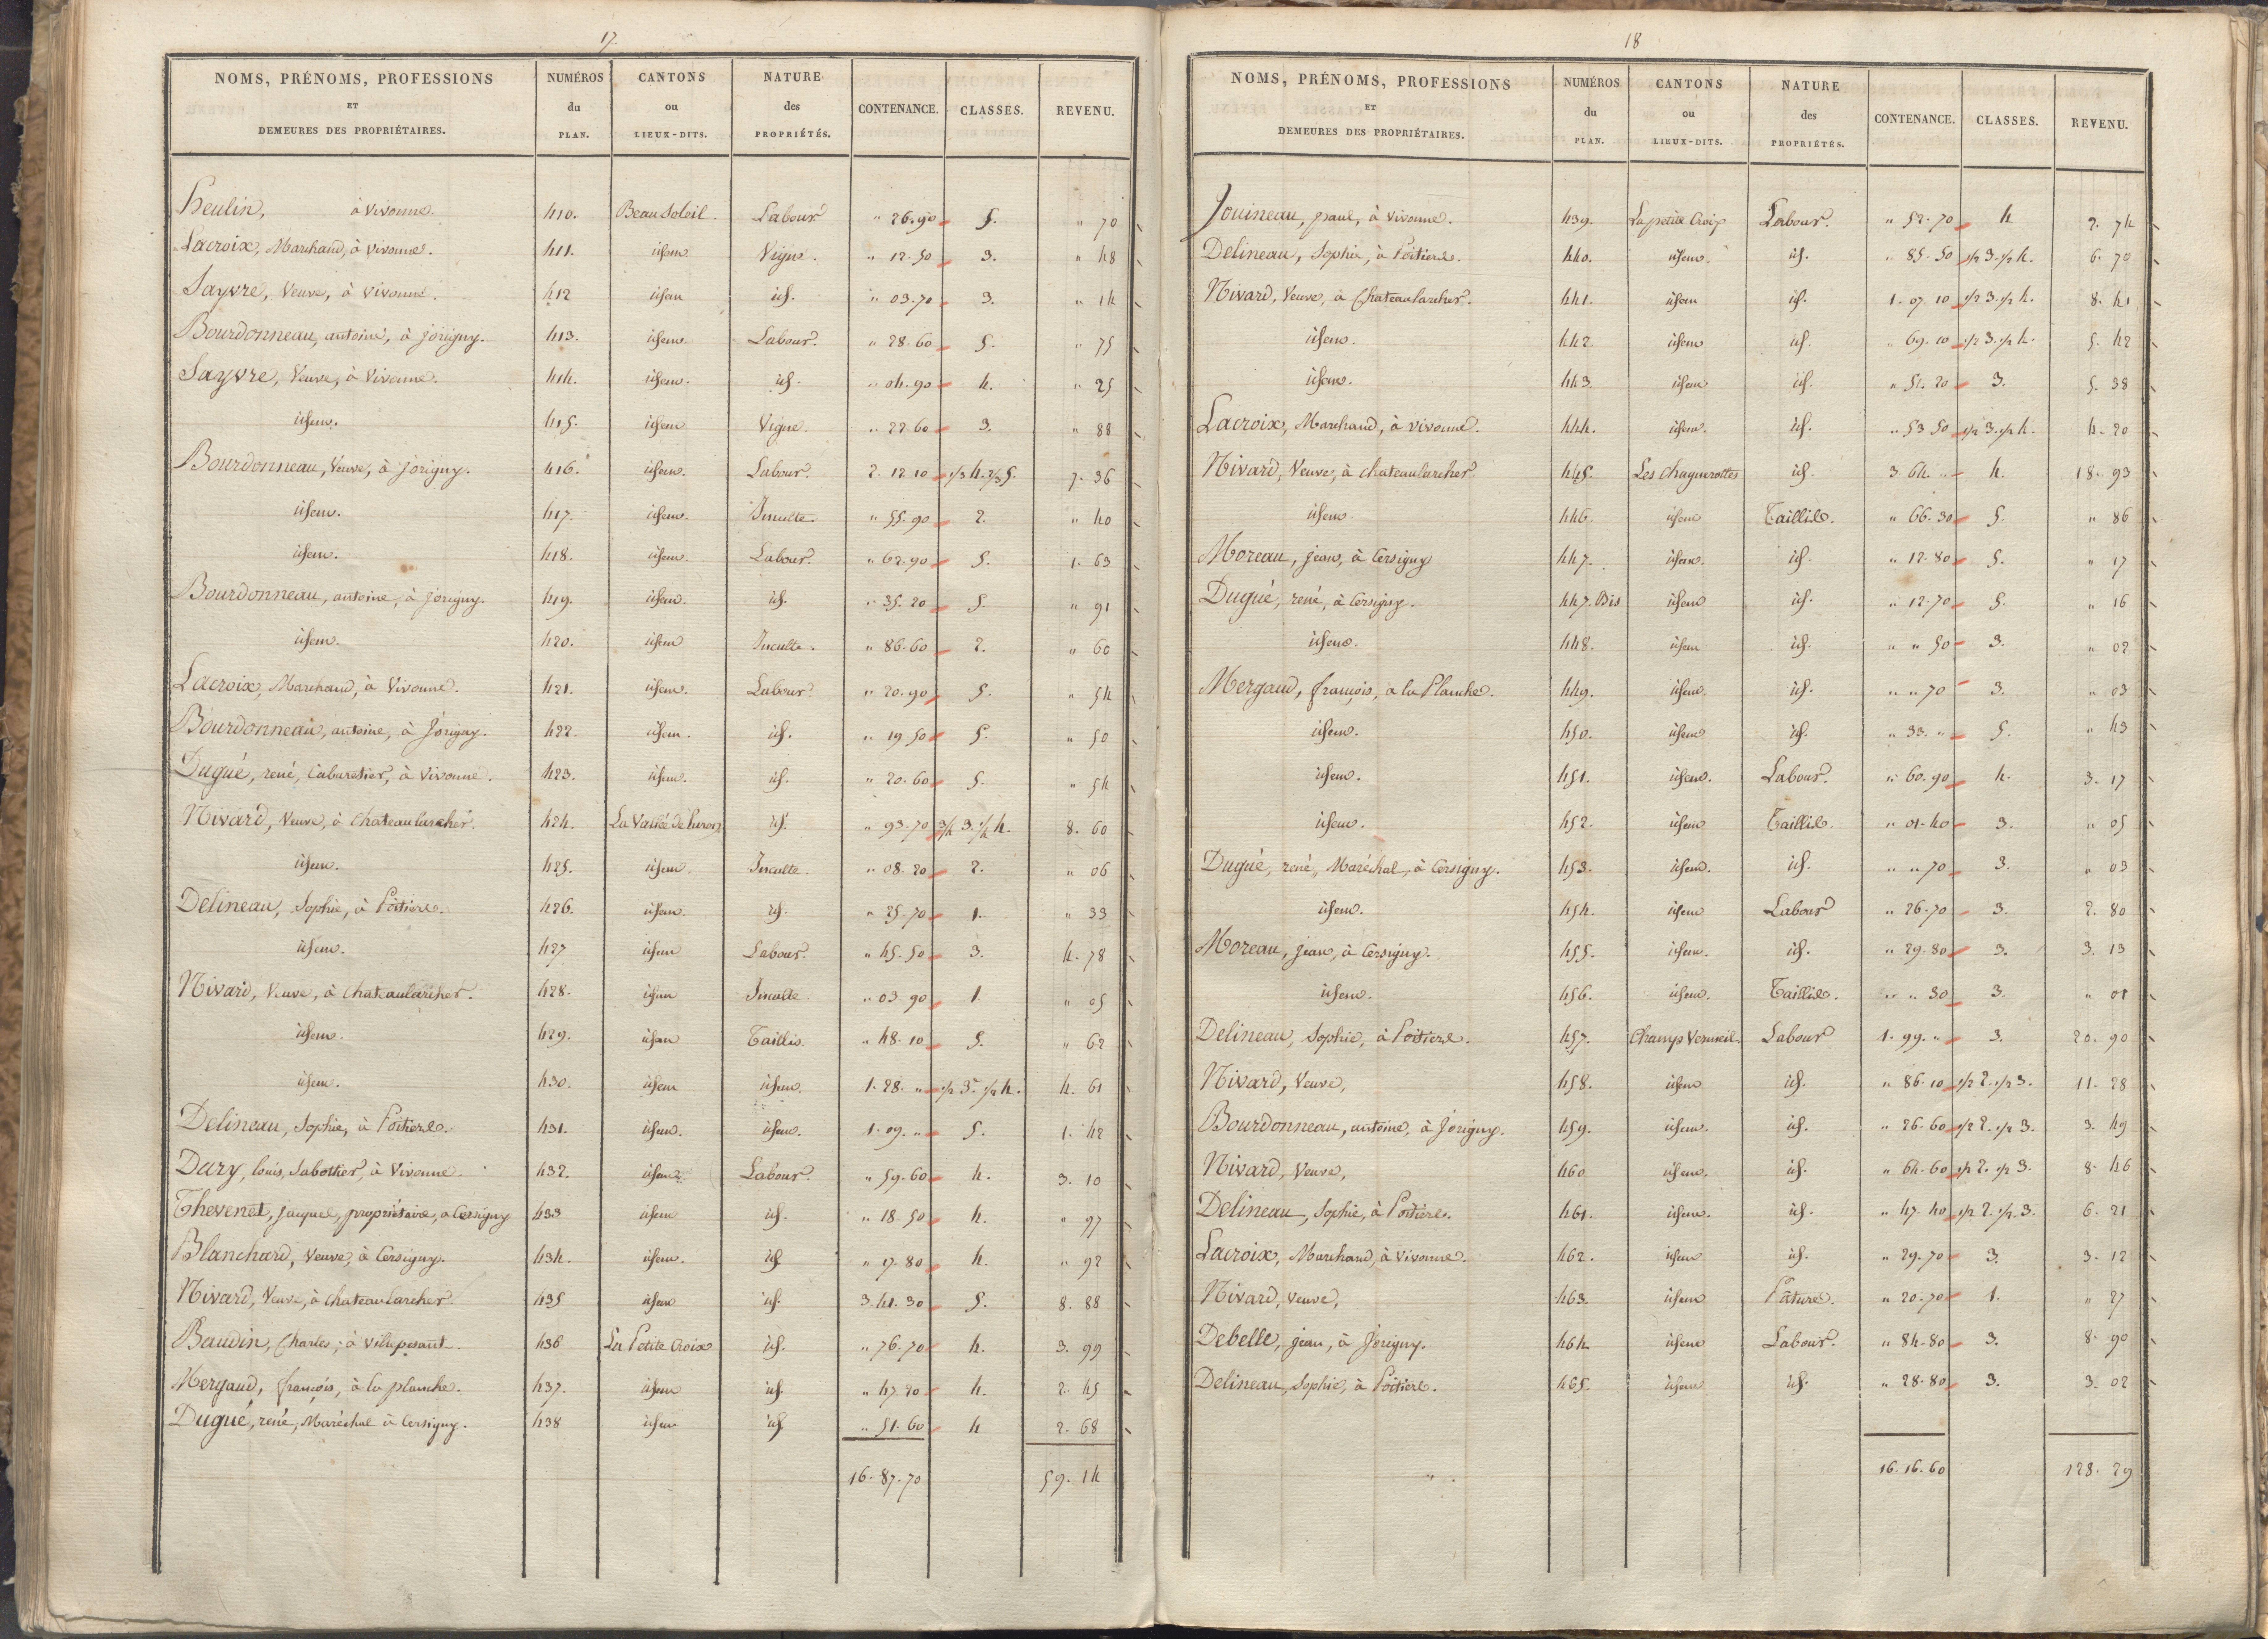 17.
NOMS, PRÉNOMS, PROFESSIONS ET DEMEURES DES PROPRIÉTAIRES. NUMÉROS du PLAN. CANTONS ou LIEUX-DITS. NATURE des PROPRIÉTÉS. CONTENANCE. CLASSES. REVENU.
Heulin, à Vivonne. 410. Beau Soleil. Labour " 26.90 5. " 70
Lacroix, Marchand, à Vivonne. 411. idem Vigne. " 12.50 3. " 48
Sayvre, Veuve, à Vivonne. 412 idem id. " 03.70 3. " 14
Bourdonneau, antoine, à jorigny. 413. idem. Labour. " 28.60 5. " 75
Sayvre, Veuve, à Vivonne. 414. idem. id. " 04.90 4. " 25
idem. 415. idem Vigne. " 22.60 3. " 88
Bourdonneau, Veuve, à jorigny. 416. idem. Labour. 2.12.10 1/3 4. 2/3 5. 7.36
idem. 417. idem. Inculte. " 55.90 2. " 40
idem. 418. idem. Labour. " 62.90 5. 1.63
Bourdonneau, antoine, à jorigny. 419. idem. id. " 35.20 5. " 91
idem. 420. idem Inculte. " 86.60 2. " 60
Lacroix, Marchand, à Vivonne. 421. idem. Labour. " 20.90 5. " 54
Bourdonneau, antoine, à Jorigny. 422. idem. id. " 19.50 5. " 50
Dugué, rené, Cabaretier, à Vivonne. 423. idem. id. " 20.60 5. " 54
Nivard, Veuve, à Chateaularcher. 424. La Vallée de id. " 93.70 3/4 3. 1/4 4. 8.60
idem. 425. idem. Inculte. " 08.20 2. " 06
Delineau, Sophie, à Poitiers. 426. idem. id. " 25.70 1. " 33
idem. 427 idem Labour. " 45.50 3. 4.78
Nivard, Veuve, à Chateaularcher. 428. idem Inculte " 03.90 1. " 05
idem. 429. idem Taillis. " 48.10 5. " 62
idem. 430. idem idem. 1.28. " 1/2 3. 1/2 4. 4.61
Delineau, Sophie, à Poitiers. 431. idem. idem. 1.09. " 5. 1.42
Dury, louis, Sabottier, à Vivonne. 432. idem. Labour. " 59.60 4. 3.10
Thevenet, jaques, propriétaire, à Cersigny 433 idem id. " 18.50 4. " 97
Blanchard, Veuve, à Cersigny. 434. idem. id. " 17.80 4. " 92
Nivard, Veuve, à Chateaularcher 435 idem id. 3.41.30 5. 8.88
Baudin, Charles, à 436 La Petite Croix id. " 76.70 4. 3.99
Mergaud, françois, à la planche. 437. idem id. " 47.20 4. 2.45
Dugué, rené, Maréchal à Cersigny. 438 idem id. " 51.60 4 2.68
16.87.70 59.14
18
NOMS, PRÉNOMS, PROFESSIONS ET DEMEURES DES PROPRIÉTAIRES. NUMÉROS du PLAN. CANTONS ou LIEUX-DITS. NATURE des PROPRIÉTÉS. CONTENANCE. CLASSES. REVENU.
Jouineau, paul, à Vivonne. 439. La petite Croix Labour. " 52.70 4 2.74
Delineau, Sophie, à Poitiers. 440. idem. id. " 85.50 1/2 3. 1/2 4. 6.70
Nivard, Veuve, à Chateaularcher. 441. idem id. 1.07.10 1/2 3. 1/2 4. 8.41
idem. 442 idem id. " 69.10 1/2 3. 1/2 4. 5.42
idem. 443 idem id. " 51.20 3. 5.38
Lacroix, Marchand, à Vivonne. 444. idem. id. " 53.50 1/2 3. 1/2 4. 4.20
Nivard, Veuve, à Chateaularcher 445. Les Chagnerottes id. 3.64. " 4. 18.93
idem. 446. idem Taillis. " 66.30 5. " 86
Moreau, jean, à Cersigny 447. idem. id. " 12.80 5. " 17
Dugué, rené, à Cersigny. 447. Bis idem id. " 12.70 5. " 16
idem. 448. idem id. " " 50 3. " 02
Mergaud, françois, à la Planche. 449. idem. id. " " 70 3. " 03
idem. 450. idem id. " 33. " 5. " 43
idem. 451. idem. Labour. " 60.90 4. 3.17
idem. 452. idem Taillis. " 01.40 3. " 05
Dugué, rené, Maréchal, à Cersigny. 453. idem. id. " " 70 3. " 03
idem. 454. idem Labour " 26.70 3. 2.80
Moreau, jean, à Cersigny. 455. idem. id. " 29.80 3. 3.13
idem. 456. idem. Taillis. " " 30 3. " 01
Delineau, Sophie, à Poitiers. 457. Champ Vermeil. Labour 1.99. " 3. 20.90
Nivard, Veuve, 458. idem id. " 86.10 1/2 2. 1/2 3. 11.28
Bourdonneau, antoine, à Jorigny. 459. idem. id. " 26.60 1/2 2. 1/2 3. 3.49
Nivard, Veuve, 460 idem. id. " 64.60 1/2 2. 1/2 3. 8.46
Delineau, Sophie, à Poitiers. 461. idem. id. " 47.40 1/2 2. 1/2 3. 6.21
Lacroix, Marchand, à Vivonne. 462. idem id. " 29.70 3. 3.12
Nivard, Veuve, 463. idem Pâture. " 20.70 1. " 27
Debelle, jean, à Jorigny. 464 idem Labour. " 84.80 3. 8.90
Delineau, Sophie, à Poitiers. 465. idem id. " 28.80 3. 3.02
16.16.60 128.29